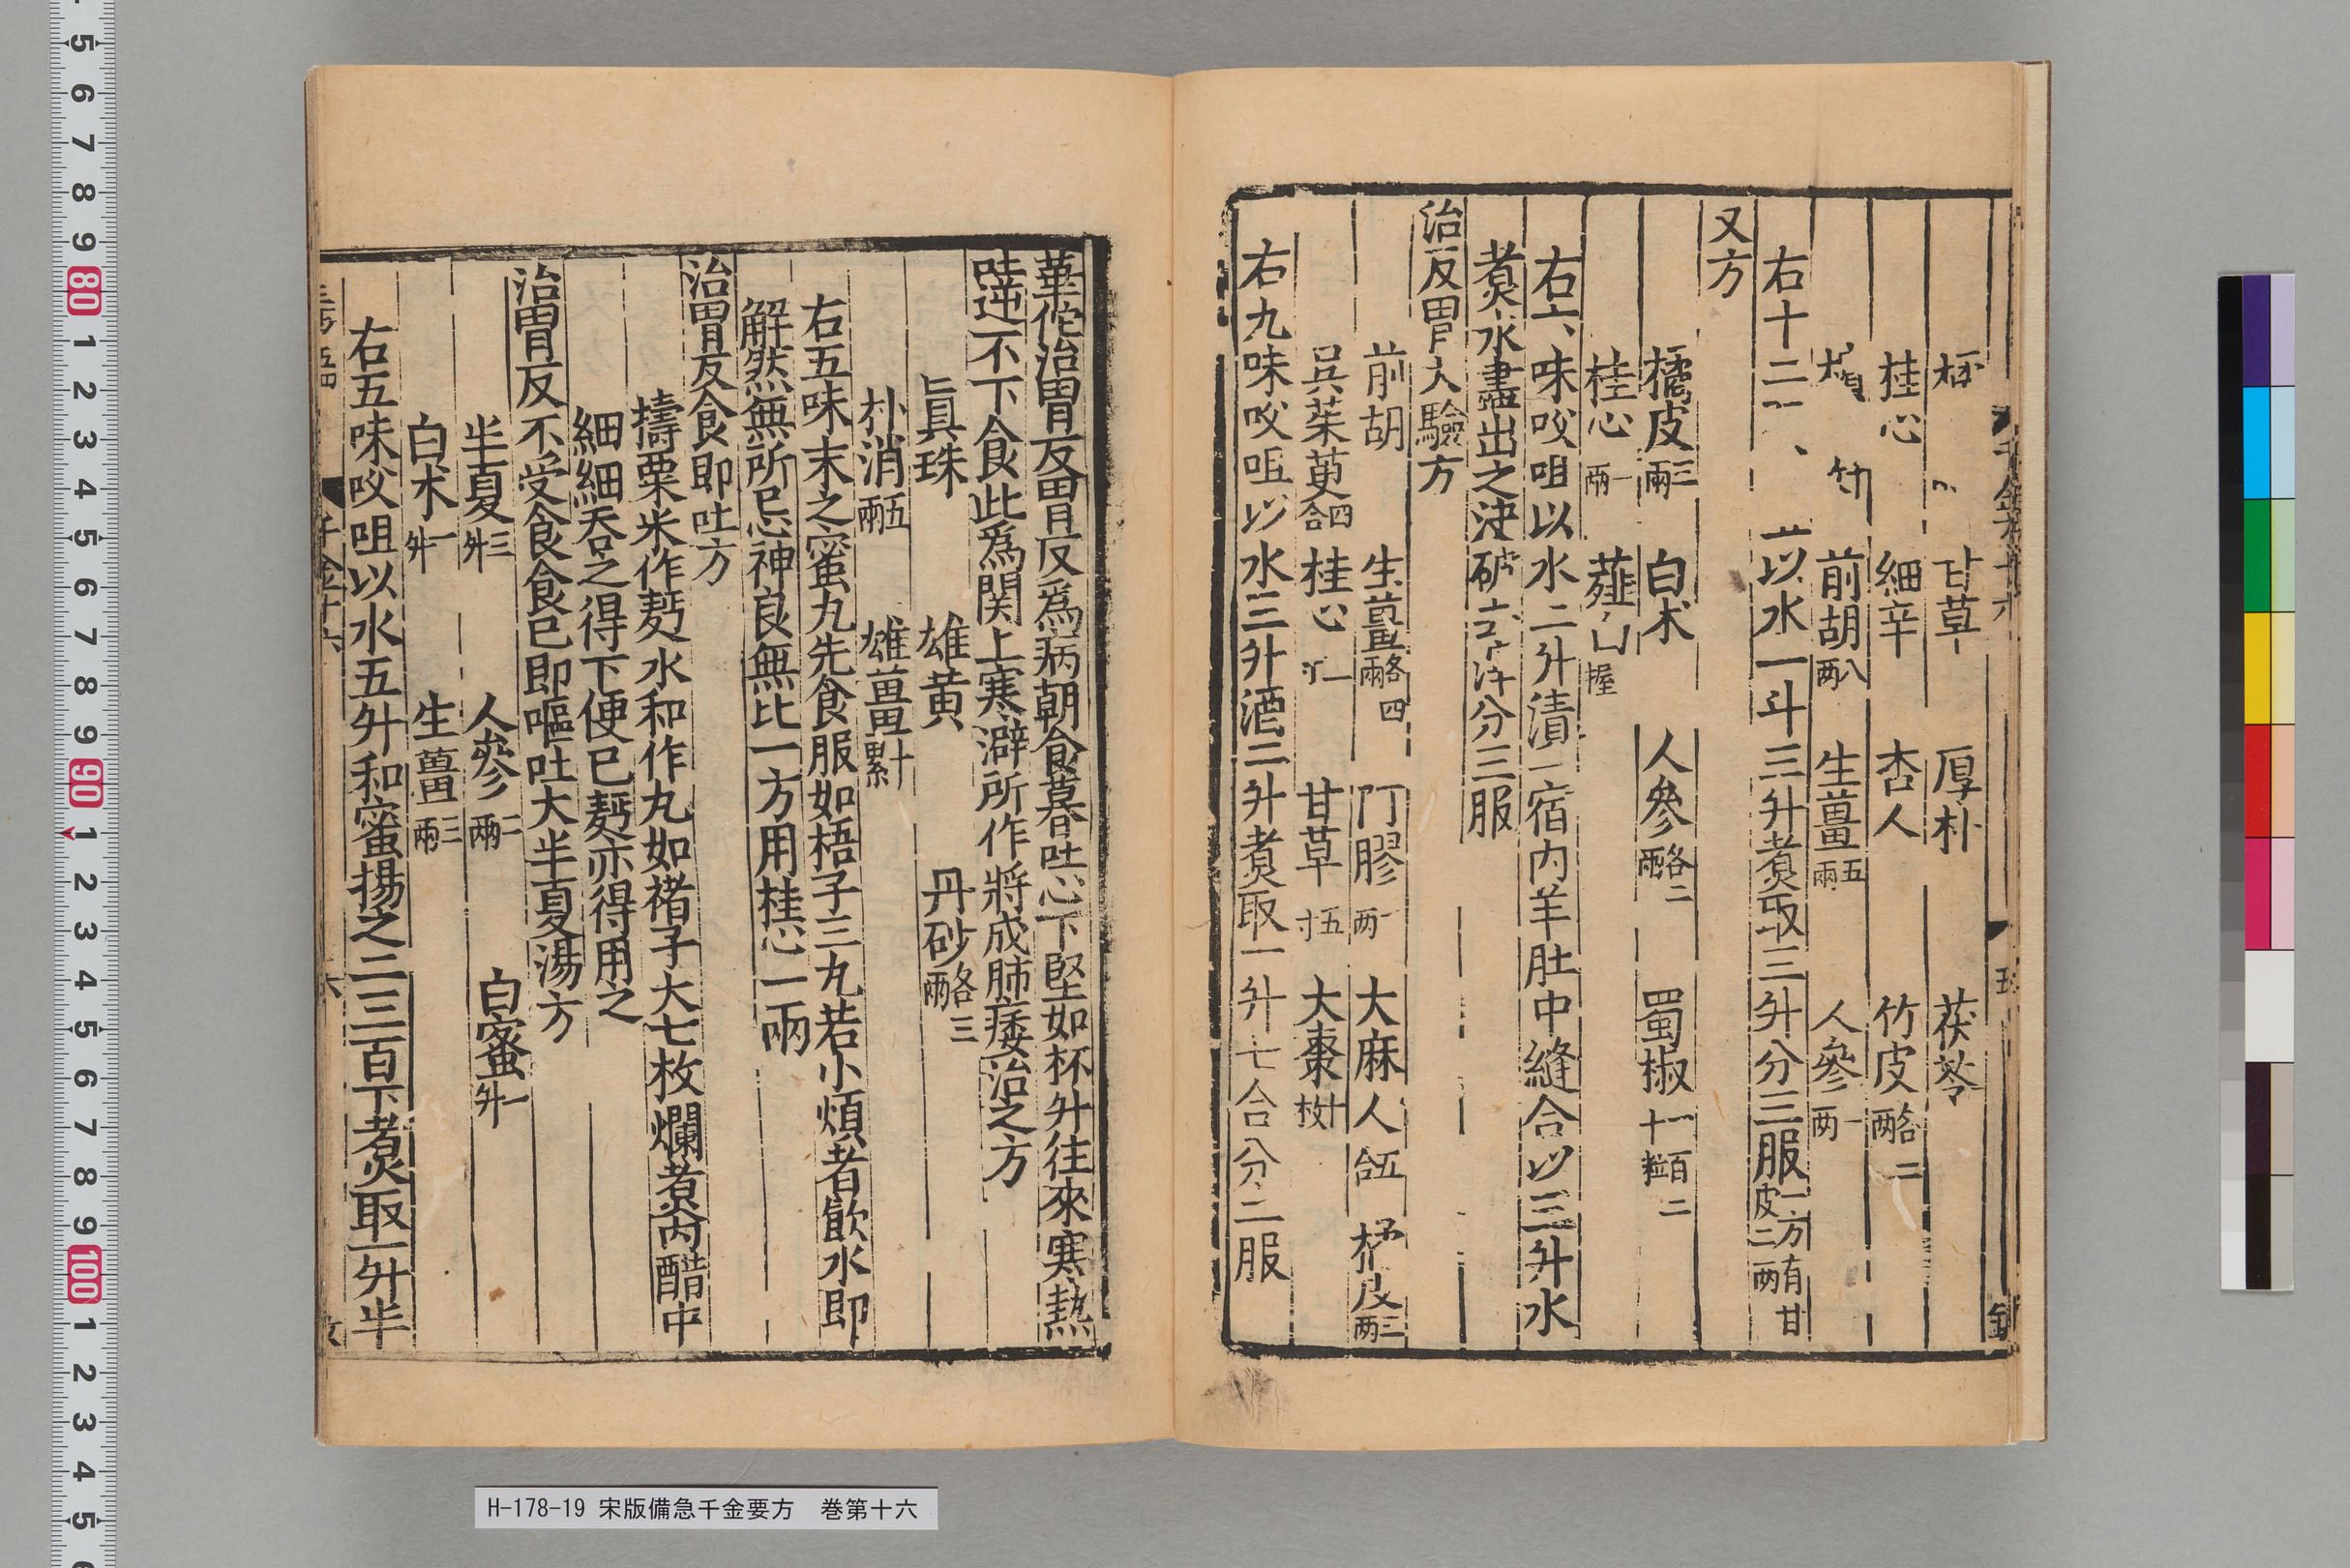 甘草 厚朴 茯苓
桂心 細辛 杏人 竹皮各二兩
前胡八兩 生薑五兩 人參一兩
右十二 以水一斗三升煮取三升分三服一方有甘皮二兩
又方
橘皮三兩 白术 人參各二兩 蜀椒一百二十粒
桂心一兩 薤 握
右六味㕮咀以水二升漬一宿内羊肚中縫合以三升水
煮水盡出之決破 分三服
治反胃大驗方
前胡 生薑各四兩 膠一兩 大麻人五合 橘皮三兩
吳茱萸四合 桂心 甘草五寸 大棗十枚
右九味㕮咀以水三升酒二升煮取一升七合分二服
華佗治胃反胃反爲病朝食暮吐心下堅如杯升往來寒熱
吐逆不下食此爲關上寒澼所作將成肺痿治之方
眞珠 雄黃 丹砂各三兩
朴消五兩 雄薑十累
右五味末之蜜丸先食服如梧子三丸若小煩者飲水即
解然無所忌神良無比一方用桂心一兩
治胃反食即吐方
擣粟米作麪水和作丸如楮子大七枚爛煮内醋中
細細吞之得下便已麪亦得用之
治胃反不受食食已即嘔吐大半夏湯方
半夏三升 人參二兩 白蜜一升
白术一升 生薑三兩
右五味㕮咀以水五升和蜜揚之二三百下煮取一升半
H-178-19 宋版備急千金要方　巻第十六